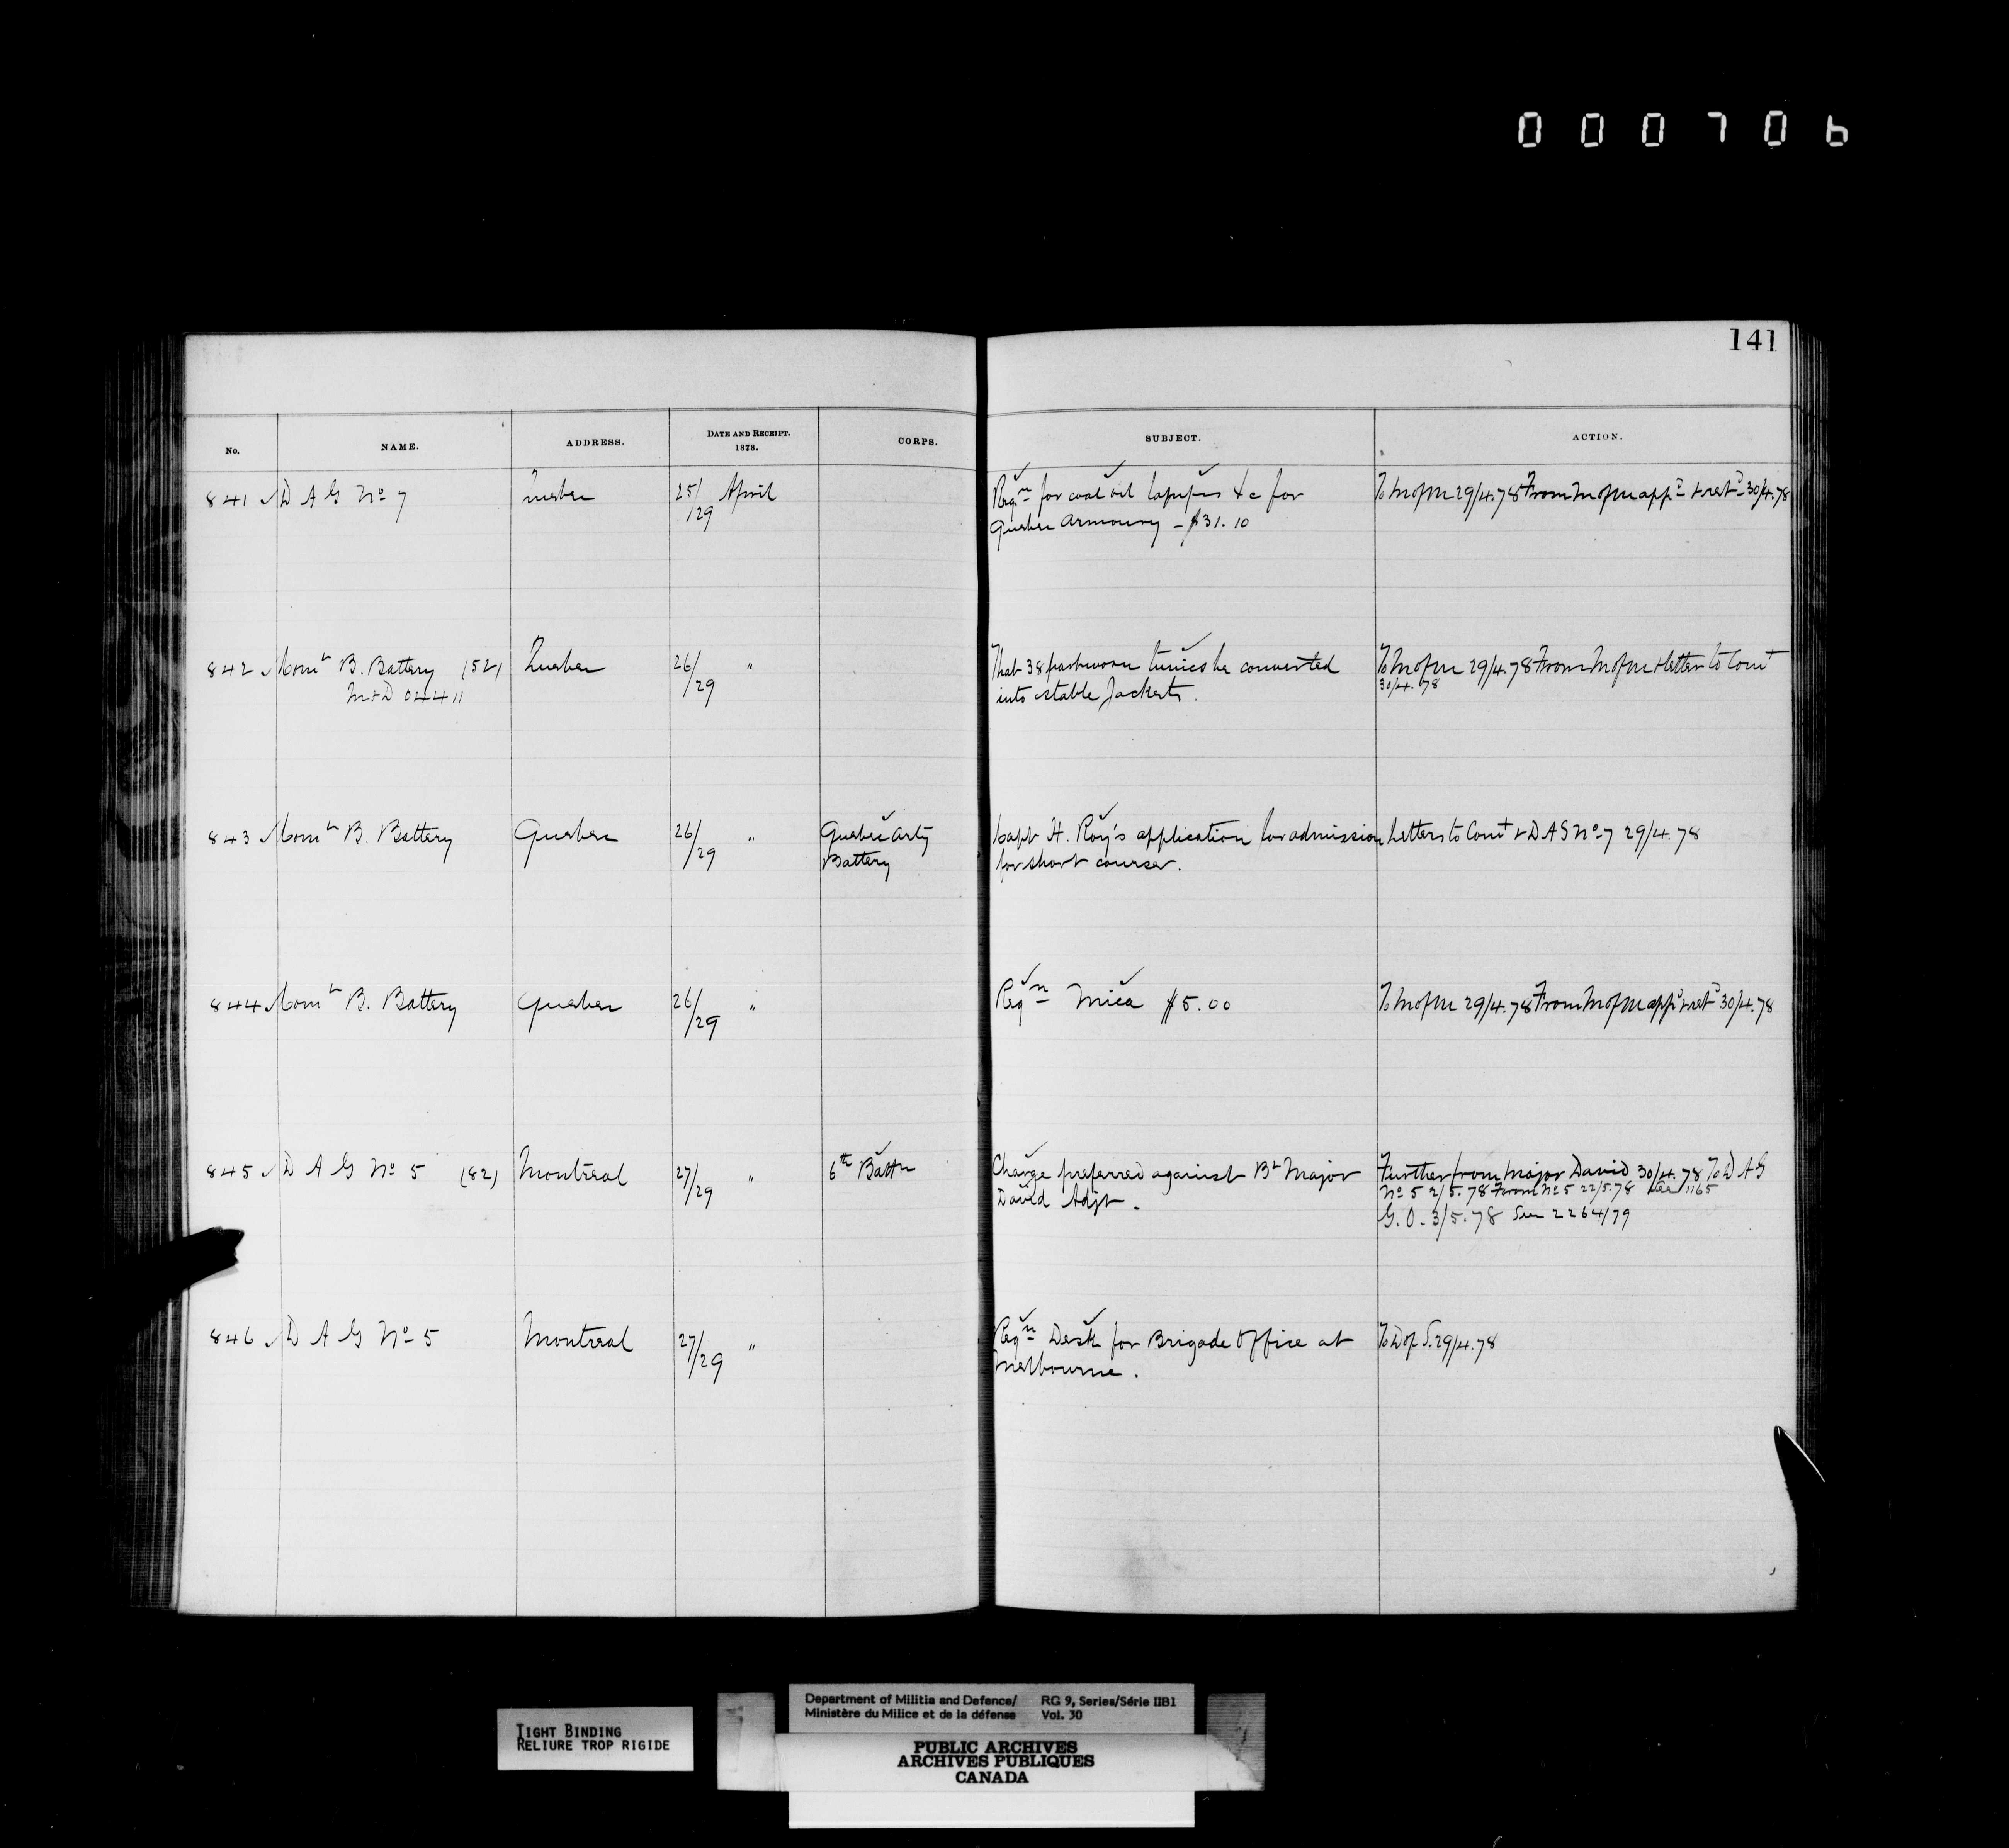 000706
141
No. NAME. ADDRESS. DATE AND RECEIPT. 1878. CORPS. SUBJECT. ACTION.
841 D A G No 7 Quebec 25/29 April Reqn for coal oil &c for To M of M 29/4.78 From M of M appd & retd 30/4.78
Quebec Armoury - $31.10
842 Comt B. Battery (52) Quebec 26/29 " That 38 part worn tunics be converted To M of M 29/4.78 From M of M & letter to Comt
M & D 04411 into stable Jackets. 30/4.78
843 Comt B. Battery Quebec 26/29 " Quebec Arty Capt H. Roy's application for admission Letters to Comt & D A G No 7 29/4.78
Battery for short course.
844 Comt B. Battery Quebec 26/29 " Reqn Mica $5.00 To M of M 29/4.78 From M of M appd & retd 30/4.78
845 D A G No 5 (82) Montreal 27/29 " 6th Battn Charge preferred against Bt Major Further from Major David 30/4.78 To D A G
David Adjt. No 5 2/5.78 From No 5 22/5.78 1165
G.O. 3/5.78 See 2264/79
846 D A G No 5 Montreal 27/29 " Reqn Desk for Brigade Office at To D of S. 29/4.78
Melbourne.
TIGHT BINDING
RELIURE TROP RIGIDE
Department of Militia and Defence/ RG 9, Series/Série IIB1
Ministère du Milice et de la défense Vol. 30
PUBLIC ARCHIVES
ARCHIVES PUBLIQUES
CANADA